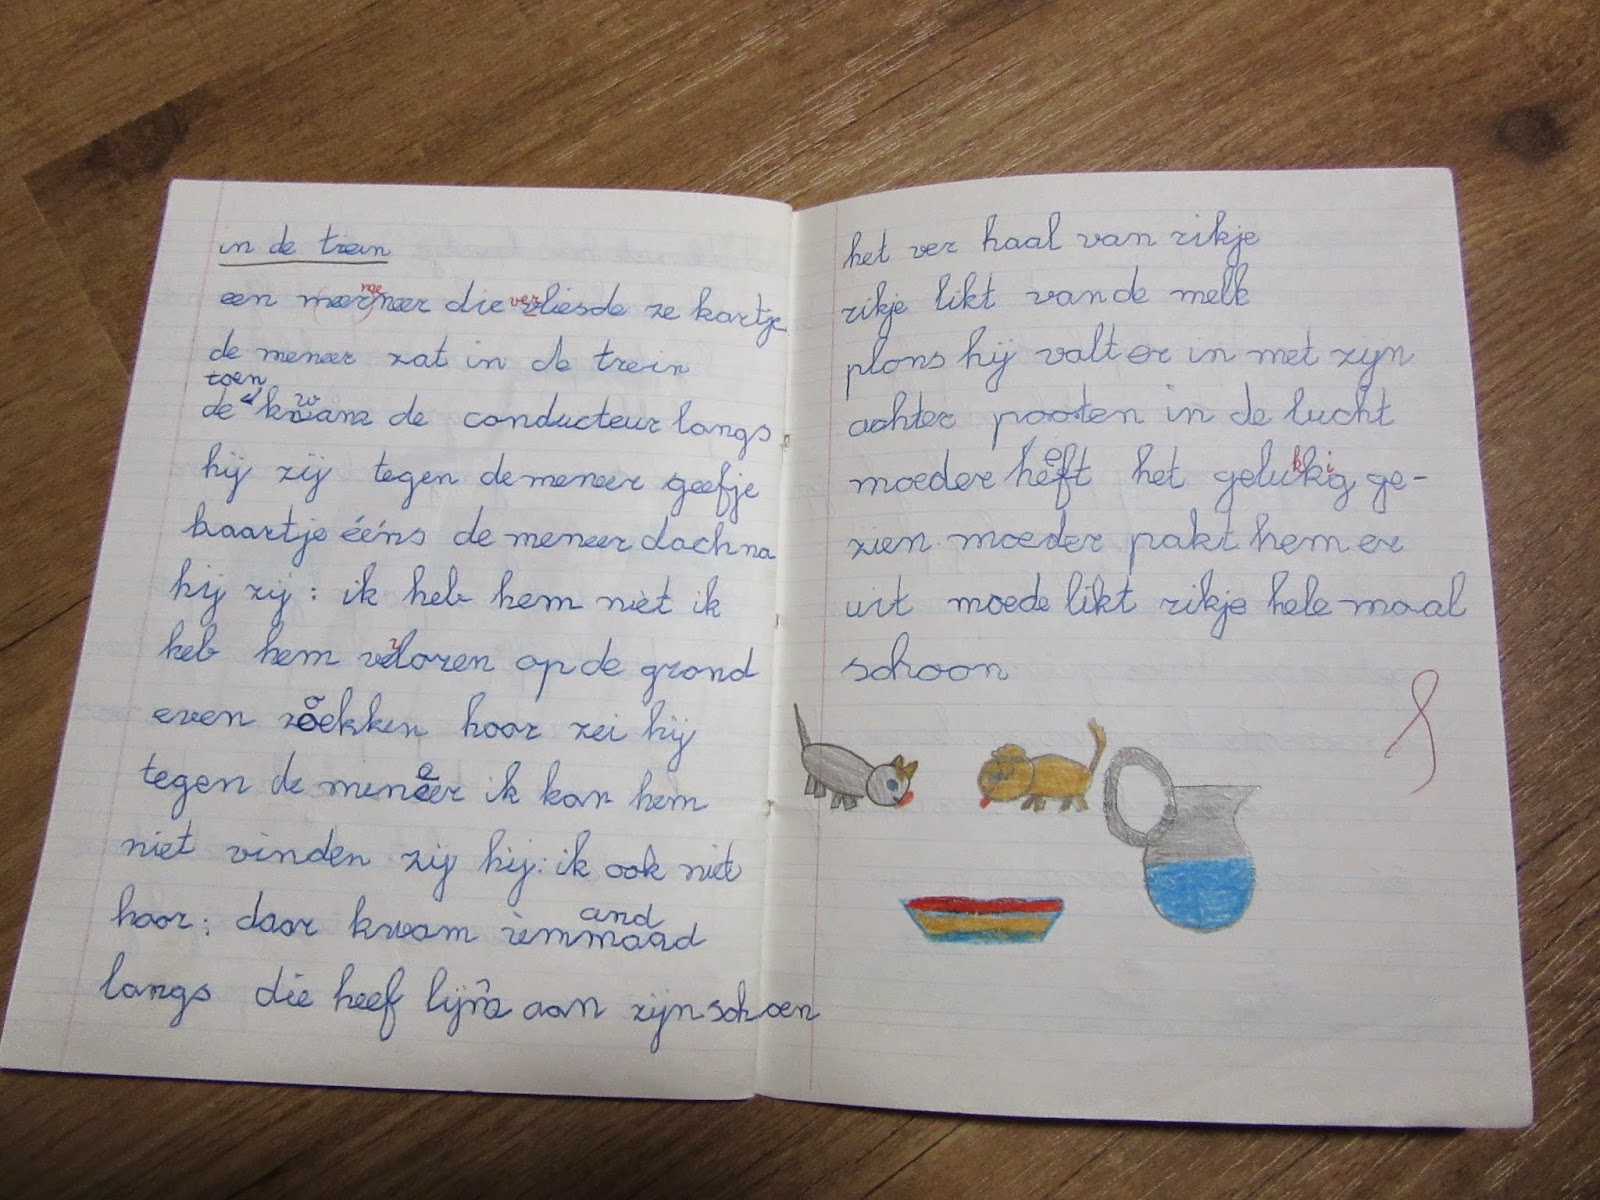 in de trein
een meermeneer die verliesde ze kartje
de meneer zat in de trein
toen
de kwam de conducteur langs
hij zij tegen de meneer geefje
kaartje ééns de meneer dach na
hij zij: ik heb hem niet ik
heb hem verloren op de grond
even zoekken hoor zei hij
tegen de meneer ik kan hem
niet vinden zij hij: ik ook niet
hoor: daar kwam iemmaad
and
langs die heef lijm aan zijn schoen
het ver haal van rikje
rikje likt van de melk
plons hij valt er in met zijn
achter pooten in de lucht
moeder heeft het gelukkig ge-
zien moeder pakt hem er
uit moede likt rikje hele maal
schoon